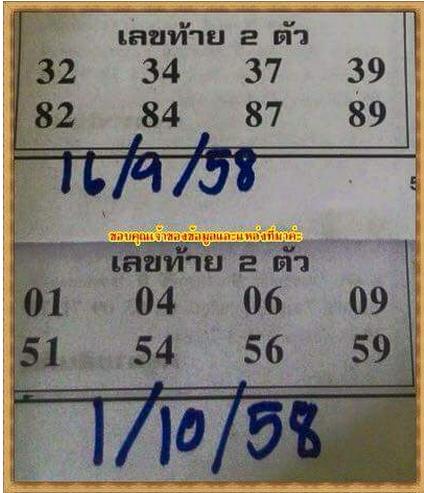 เลขท้าย 2 ตัว
32 34 37 39
82 84 87 89
16/9/58
ขอบคุณเจ้าของข้อมูลและแหล่งที่มาค่ะ
เลขท้าย 2 ตัว
01 04 06 09
51 54 56 59
1/10/58